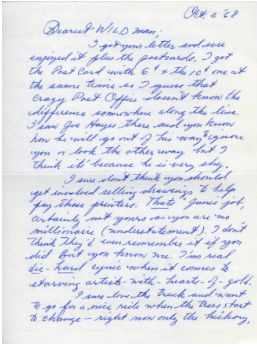 Oct. 2 '69
Dearest WILD man;
I got your letter and sure
enjoyed it plus the postcards. I got
the Post Card with 6¢ & the 10¢ one at
the same time so I guess that
crazy Post Office doesn't know the
difference somewhere along the line.
I saw Joe Hayes there and you know
how he will go out of his way to ignore
you or look the other way but I
think it's because he is very shy.
I sure don't think you should
get involved selling drawings to help
pay those printers. Thats' Junes' job,
certainly not yours as you are no
millionaire (understatement). I don't
think they'd even remember it if you
did. But you know me. I'm real
die-hard cynic when it comes to
starving artists-with-hearts-of-gold.
I sure love the truck and want
to go for a nice ride when the trees start
to change - right now only the hickory,